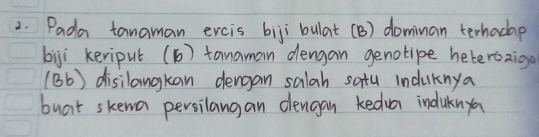 2. Pada tanaman ercis biji bulat (B) dominan terhadap
biji keriput (b) tanaman dengan genotipe heterozigo
(Bb) disilangkan dengan salah satu induknya
buat skema persilangan dengan kedua induknya